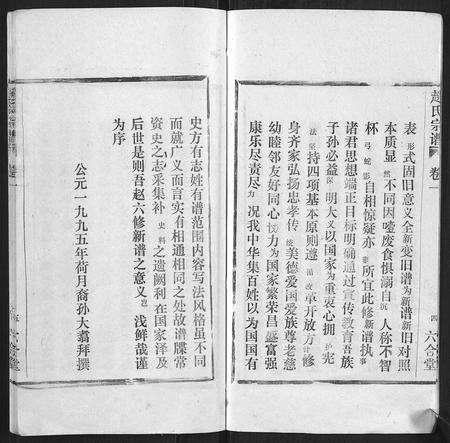 趙氏宗譜
卷一
四
六合堂
表形式固旧意义全新变旧谱为新旧对照
本质显然不同因噎废食惧溺自沉人称不智
杯弓蛇影自相惊疑亦所宜此修新谱执事
诸君思想端正目标明确通过宣传教育吾族
子孙必益深明大义以国家为重衷心拥护宪
法坚持四项基本原则遵循改革开放方针修
身齐家弘扬忠孝传统美德爱国爱族尊老慈
幼睦邻友好同心协力为国家繁荣昌盛富强
康乐尽责尽力况我中华集百姓以为国国有
史方有志姓有谱范围内容写法风格虽不同
而就广义而言实有相通相同之处故谱牒常
资史志采集补史料之遗阙利在国家泽及
后世是则吾赵六修新谱之意义也浅鲜哉谨
为序
公元一九九五年荷月裔孙大翥拜撰